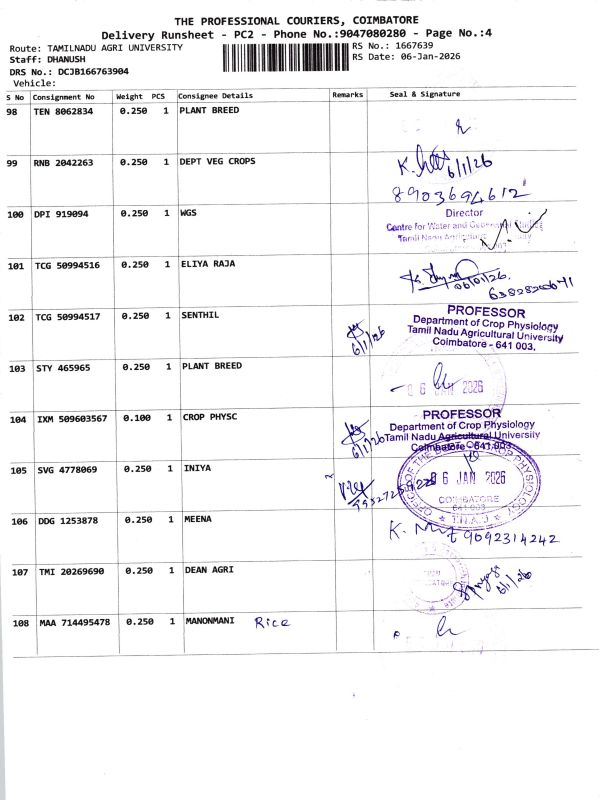 THE PROFESSIONAL COURIERS, COIMBATORE
Delivery Runsheet - PC2 - Phone No.:9047080280 - Page No.:4
Route: TAMILNADU AGRI UNIVERSITY
RS No.: 1667639
Staff: DHANUSH
RS Date: 06-Jan-2026
DRS No.: DCJB166763904
Vehicle:
S No Consignment No Weight PCS Consignee Details Remarks Seal & Signature
98 TEN 8062834 0.250 1 PLANT BREED
99 RNB 2042263 0.250 1 DEPT VEG CROPS
6/1/26
8903694612
100 DPI 919094 0.250 1 WGS
Director
Centre for Water and Geospatial Studies
Tamil Nadu Agricultural University
101 TCG 50994516 0.250 1 ELIYA RAJA
06/01/26.
102 TCG 50994517 0.250 1 SENTHIL
6/1/26
PROFESSOR
Department of Crop Physiology
Tamil Nadu Agricultural University
Coimbatore - 641 003.
103 STY 465965 0.250 1 PLANT BREED
06 JAN 2026
104 IXM 509603567 0.100 1 CROP PHYSC
6/1/26
PROFESSOR
Department of Crop Physiology
Tamil Nadu Agricultural University
Coimbatore - 641 003.
105 SVG 4778069 0.250 1 INIYA
06 JAN 2026
COIMBATORE
641 003
T.N.A.U
106 DDG 1253878 0.250 1 MEENA
9092314242
107 TMI 20269690 0.250 1 DEAN AGRI
6/1/26
108 MAA 714495478 0.250 1 MANONMANI Rice